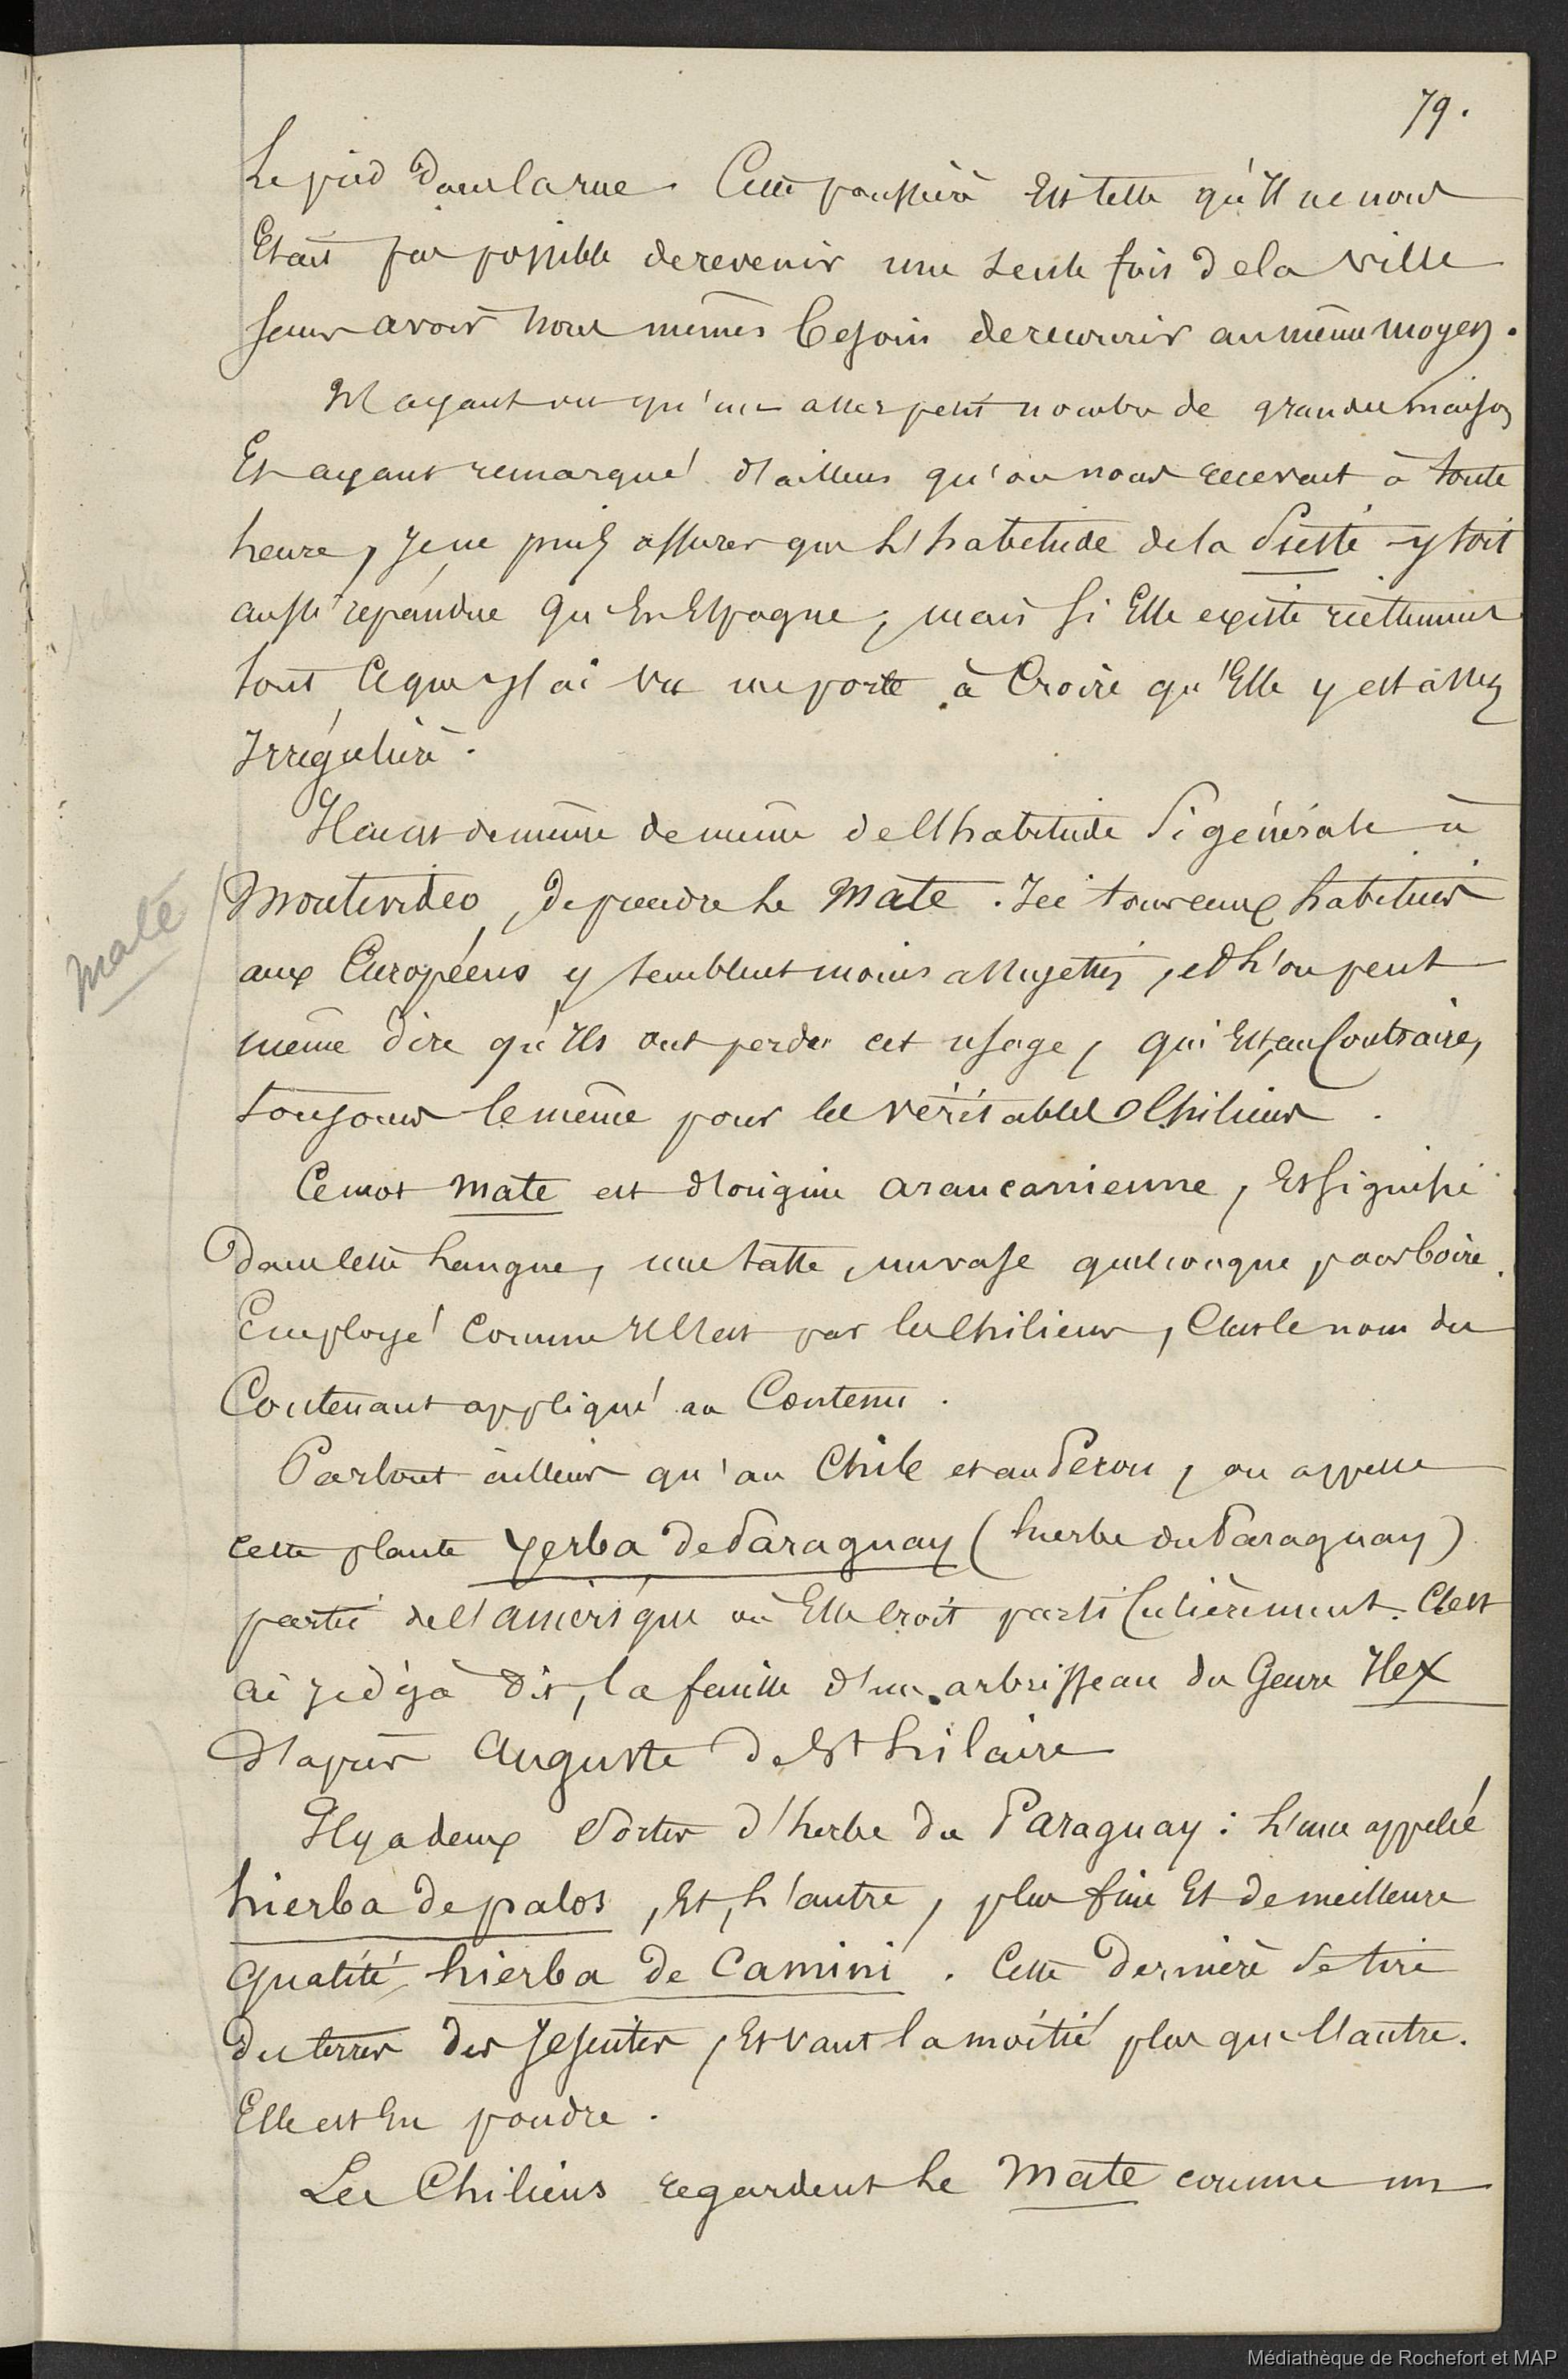 79.
Le pied dans la rue. Cette poussière Est telle qu'Il ne nous
Etait pas possible de revenir une seule fois de la ville
sans avoir nous mêmes besoin de recourir au même moyen.
N'ayant vu qu'un assez petit nombre de grandes maisons
Et ayant remarqué d'ailleurs qu'on nous recevait à toute
heure, Je ne puis assurer que L'habitude de la Sieste y soit
aussi répandue qu'En Espagne, mais si Elle existe réellement
tout Ce que J'ai vu me porte à Croire qu'Elle y est assez
Irrégulière.
Il en est de même de même de l'habitude Si générale à
Montevideo, De prendre Le Mate. Ici tous ceux habitués
aux Européens y semblent moins assujettis, et L'on peut
même dire qu'Ils ont perdu cet usage, qui Est, au Contraire,
toujours le même pour les véritables Chiliens.
Maté
Ce mot mate est d'origine araucanienne, Et signifie
Dans cette Langue, une tasse, un vase quelconque pour boire.
Employé Comme Il l'est par les Chiliens, C'est le nom du
Contenant appliqué au Contenu.
Partout ailleurs qu'au Chile et au Pérou, on appelle
cette plante yerba De Paraguay (herbe du Paraguay)
partie de l'amérique où Elle Croit particulièrement. C'est
ai je déjà Dit, la feuille d'un arbrisseau du Genre Ilex
D'après Auguste De St hilaire
Il y a deux Sortes d'herbe du Paraguay: L'une appelée
hierba de palos, Et, L'autre, plus fine Et de meilleure
qualité, hierba de Camini. Cette Dernière Se tire
Des terres des Jésuites, Et vaut la moitié plus que l'autre.
Elle est En poudre.
Les Chiliens regardent Le Mate comme un
Médiathèque de Rochefort et MAP